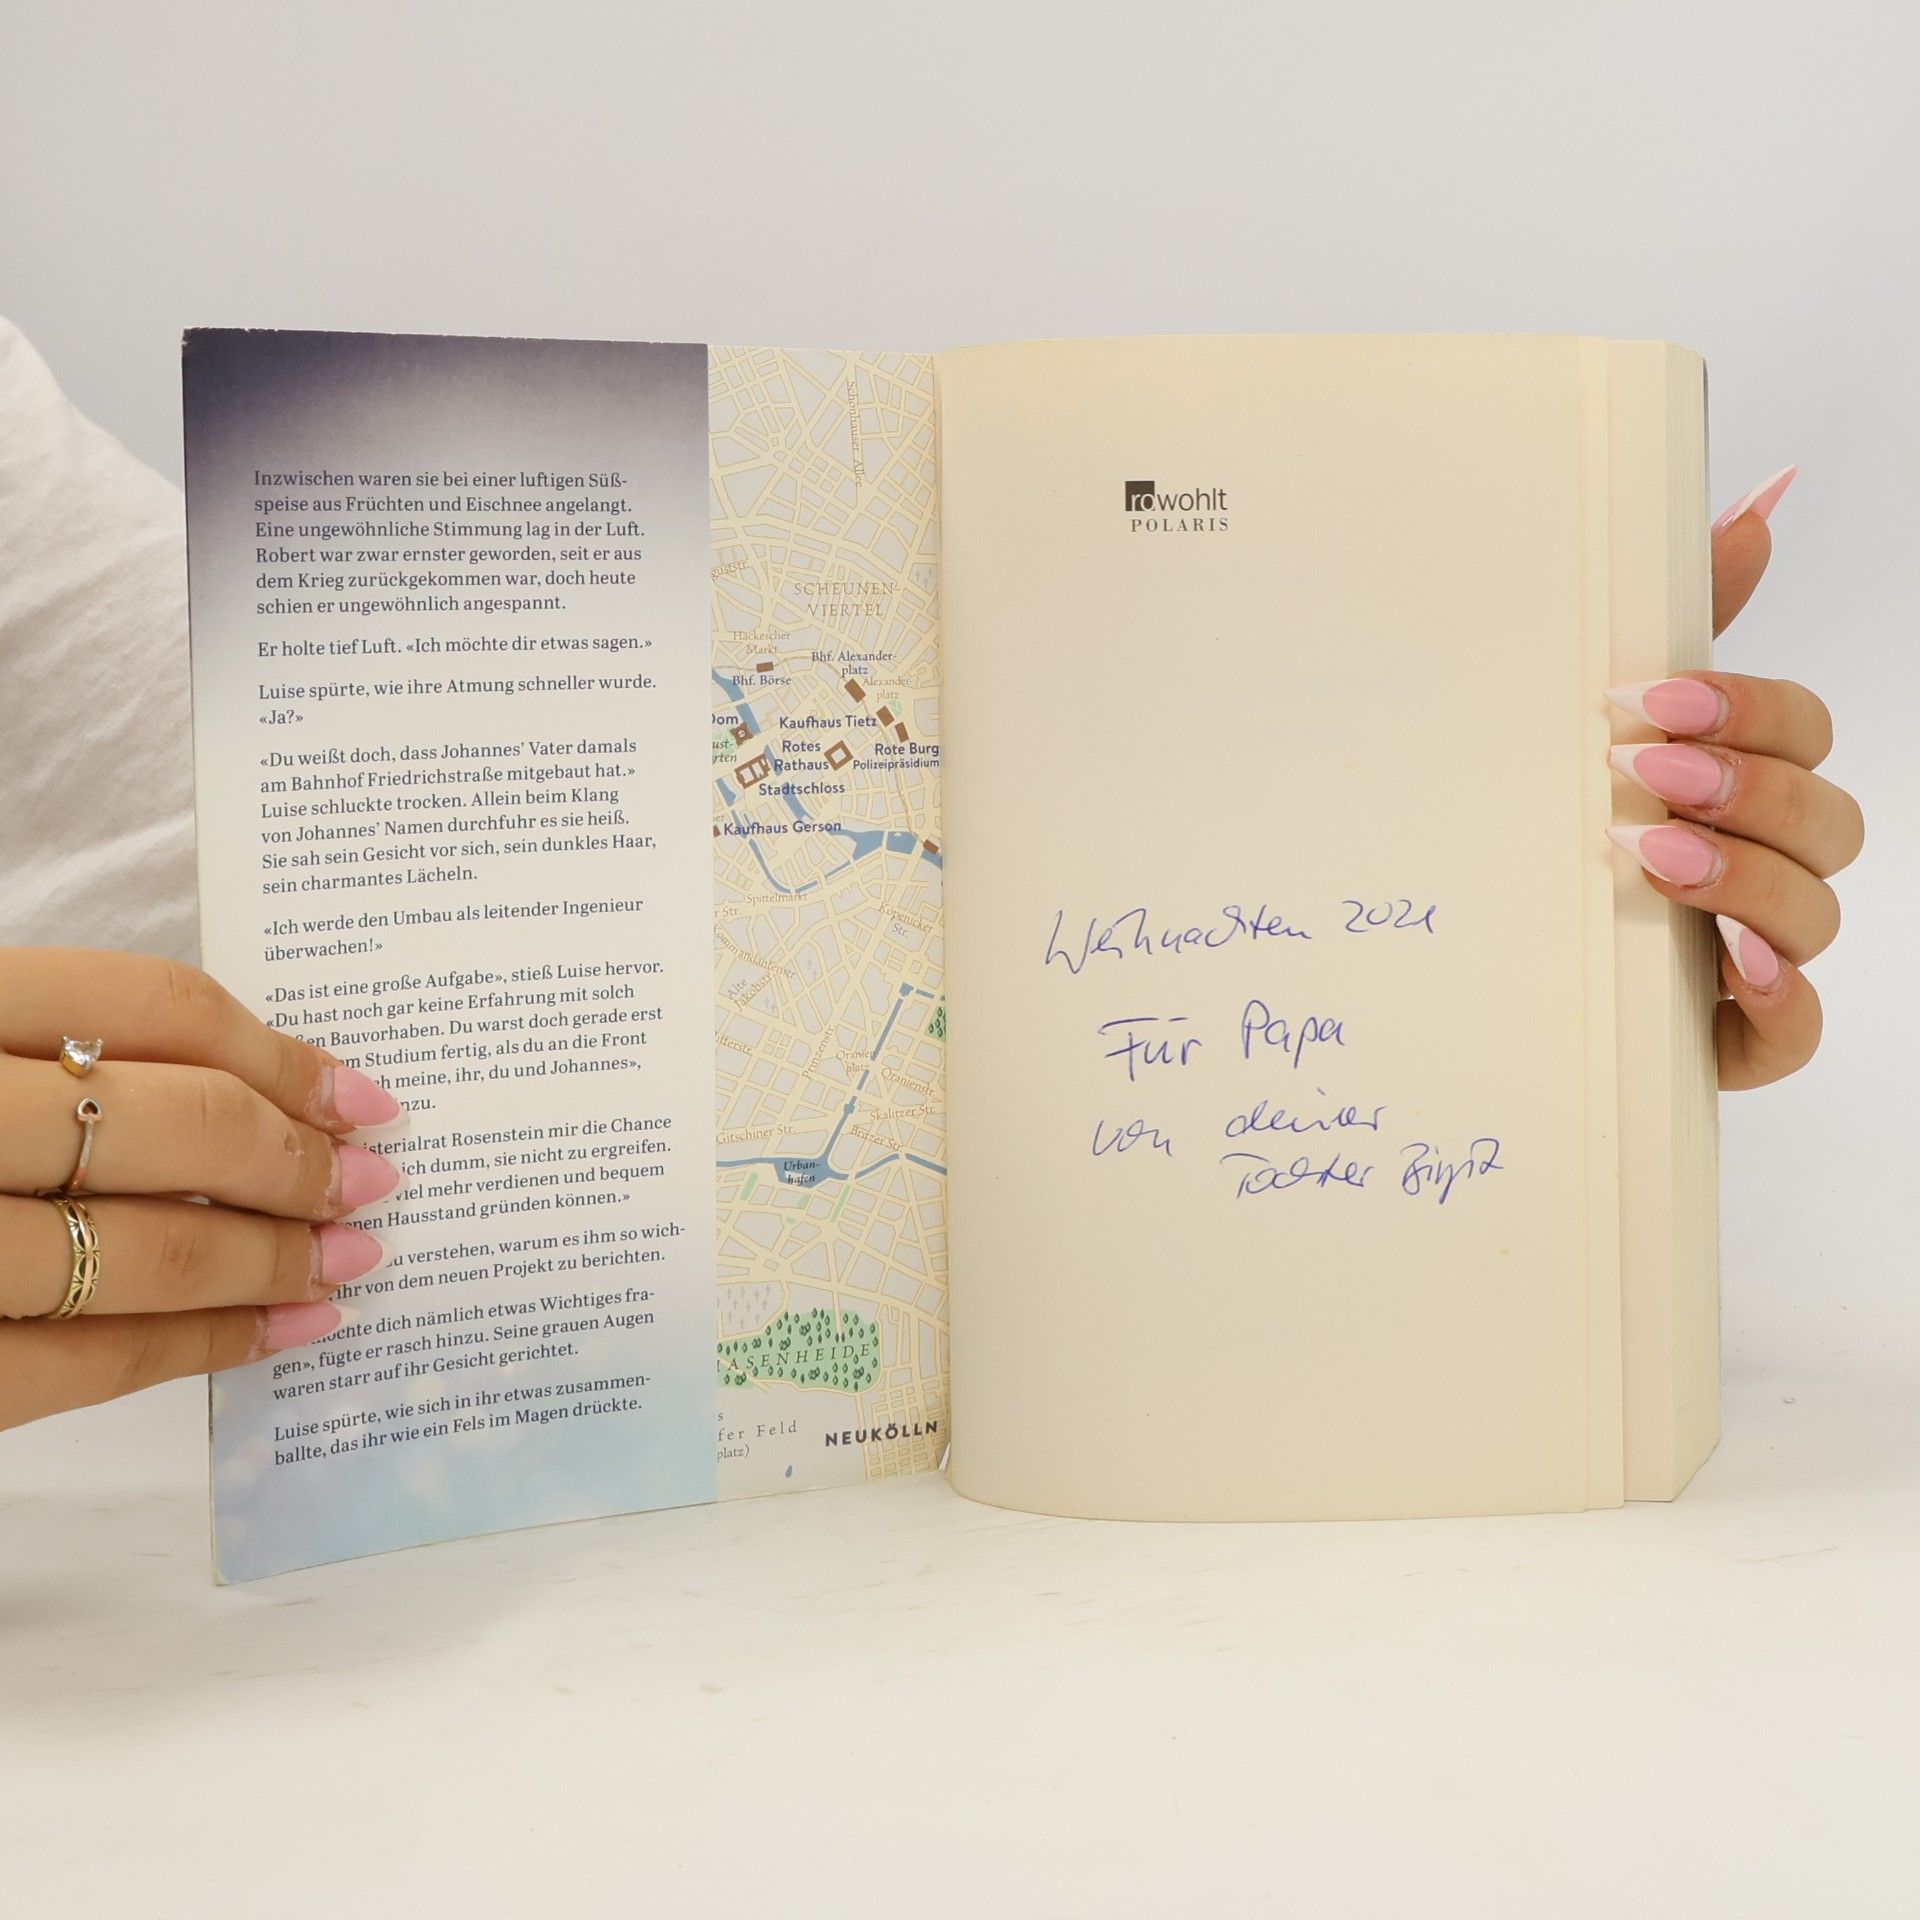 Inzwischen waren sie bei einer luftigen Süß-
speise aus Früchten und Eischnee angelangt.
Eine ungewöhnliche Stimmung lag in der Luft.
Robert war zwar ernster geworden, seit er aus
dem Krieg zurückgekommen war, doch heute
schien er ungewöhnlich angespannt.
Er holte tief Luft. «Ich möchte dir etwas sagen.»
Luise spürte, wie ihre Atmung schneller wurde.
«Ja?»
«Du weißt doch, dass Johannes’ Vater damals
am Bahnhof Friedrichstraße mitgebaut hat.»
Luise schluckte trocken. Allein beim Klang
von Johannes’ Namen durchfuhr es sie heiß.
Sie sah sein Gesicht vor sich, sein dunkles Haar,
sein charmantes Lächeln.
«Ich werde den Umbau als leitender Ingenieur
überwachen!»
«Das ist eine große Aufgabe», stieß Luise hervor.
«Du hast noch gar keine Erfahrung mit solch
Bauvorhaben. Du warst doch gerade erst
Studium fertig, als du an die Front
meine, ihr, du und Johannes»,
Rosenstein mir die Chance
dumm, sie nicht zu ergreifen.
viel mehr verdienen und bequem
Hausstand gründen können.»
verstehen, warum es ihm so wich-
ihr von dem neuen Projekt zu berichten.
dich nämlich etwas Wichtiges fra-
gen», fügte er rasch hinzu. Seine grauen Augen
waren starr auf ihr Gesicht gerichtet.
Luise spürte, wie sich in ihr etwas zusammen-
ballte, das ihr wie ein Fels im Magen drückte.
Schönhauser Allee
SCHEUNEN-
VIERTEL
Hackescher
Markt
Bhf. Börse
Bhf. Alexander-
platz
Alexander-
platz
Dom
Kaufhaus Tietz
Rotes
Rathaus
Rote Burg
Polizeipräsidium
Stadtschloss
Kaufhaus Gerson
Spittelmarkt
Kommandantenstr.
Alte
Jakobstr.
Prinzenstr.
Oranien-
platz
Oranienstr.
Skalitzer Str.
Gitschiner Str.
Britzer Str.
Urban-
hafen
ASENHEIDE
Feld
platz)
NEUKÖLLN
rowohlt
POLARIS
Weihnachten 2021
Für Papa
von deiner
Tochter Birgit